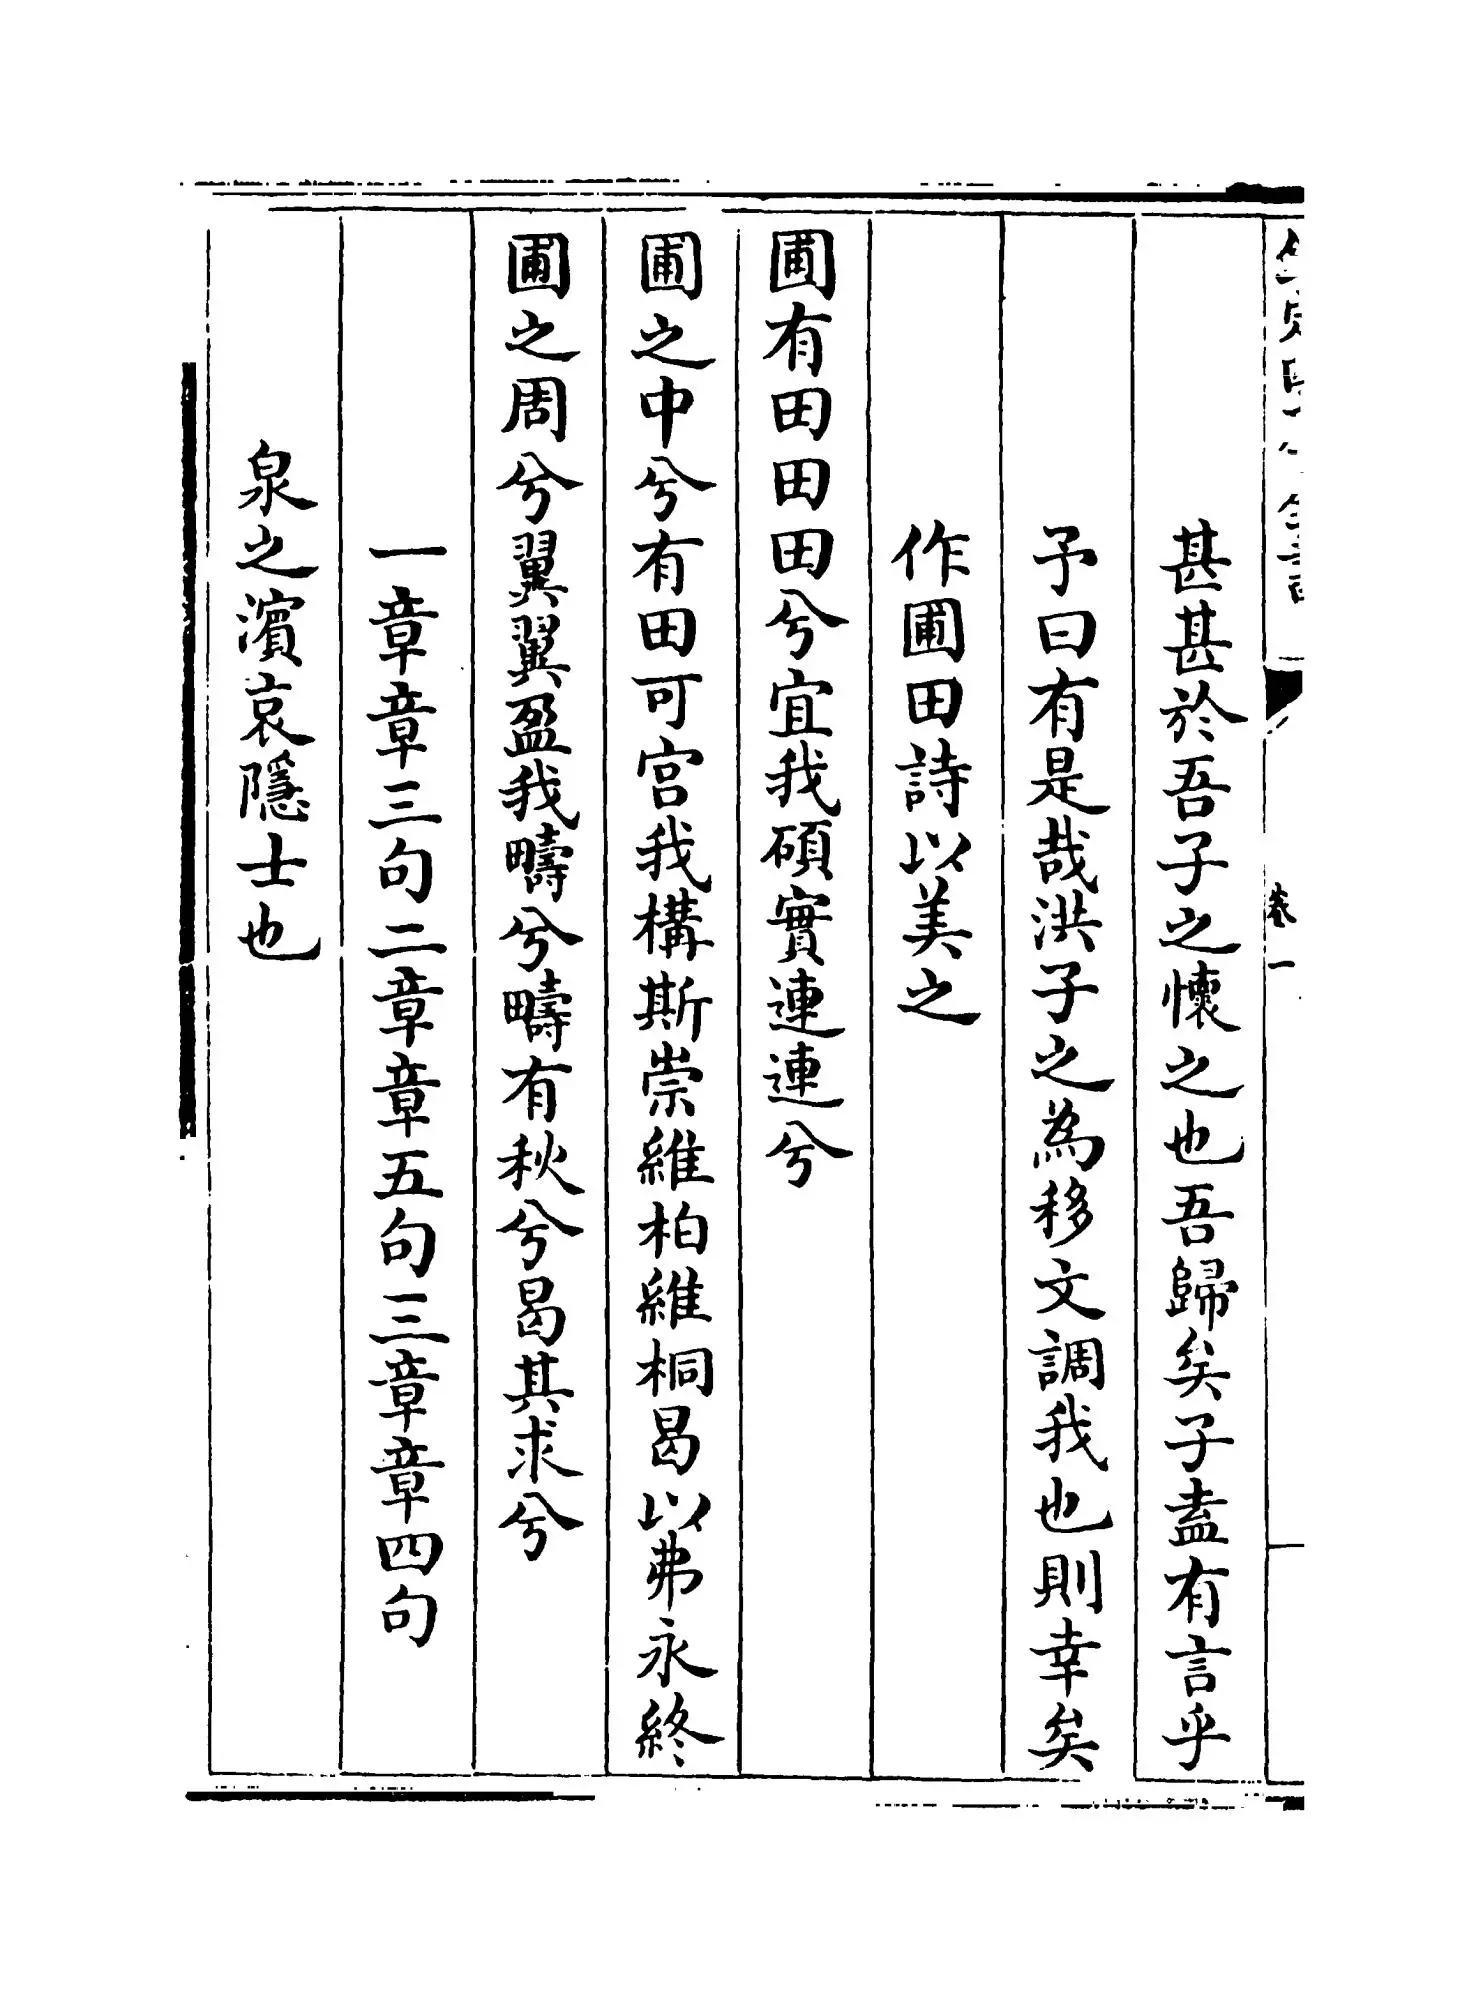 甚甚於吾子之懷之也吾歸矣子盍有言乎
予曰有是哉洪子之為移文調我也則幸矣
作圃田詩以美之
圃有田田田兮宜我碩實連連兮
圃之中兮有田可宮我構斯崇維柏維桐曷以弗永終
圃之周兮翼翼盈我疇兮疇有秋兮曷其求兮
一章章三句二章章五句三章章四句
泉之濱哀隱士也
卷一